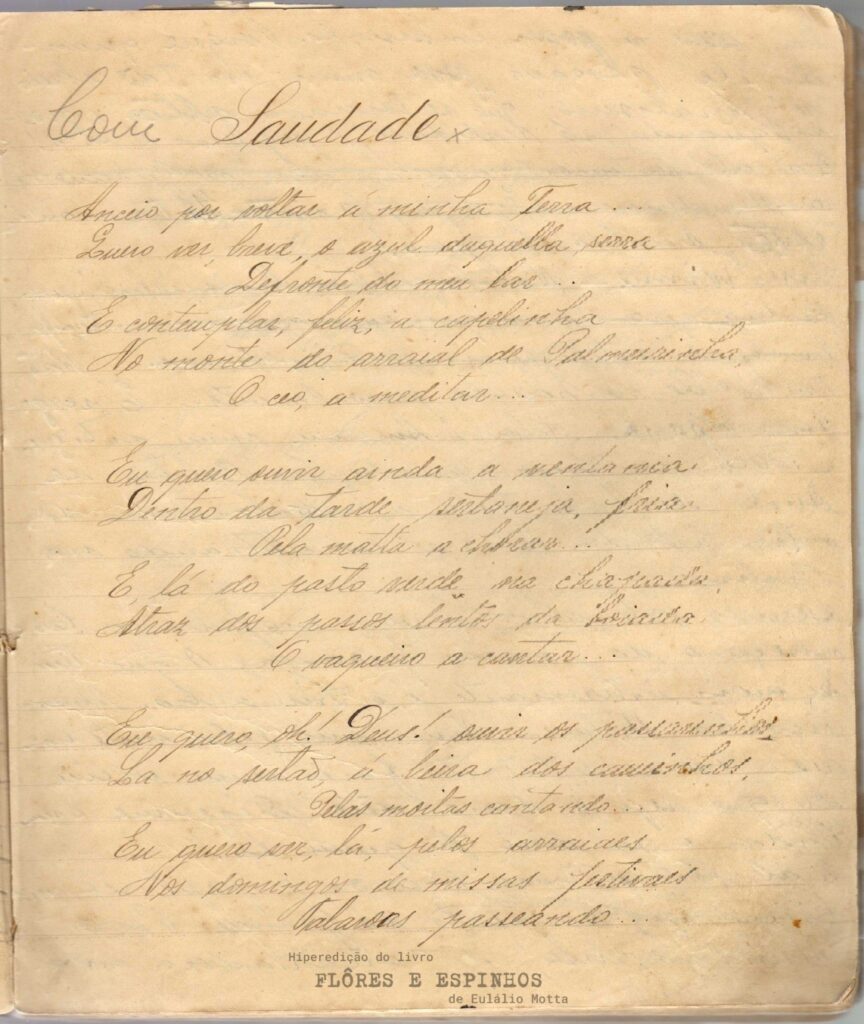 Com Saudade x
Anceio por voltar á minha Terra...
Quero ver, breve, o azul daquella serra
Defronte do meu lar...
E contemplar, feliz, a capelinha
No monte do arraial de Palmeirinha,
O ceo, a meditar...
Eu quero ouvir ainda a ventania
Dentro da tarde sertaneja, fria
Pela matta a chorar...
E, lá do pasto verde na chapada,
Atraz dos passos lentos da boiada
O vaqueiro a cantar...
Eu quero, oh! Deus! ouvir os passarinhos
Lá no sertão, á beira dos caminhos,
Pelas moitas cantando...
Eu quero ver, lá, pelos arraiaes
Nos domingos de missas festivaes
Tabaroas passeando...
Hiperedição do livro
FLÔRES E ESPINHOS
de Eulálio Motta